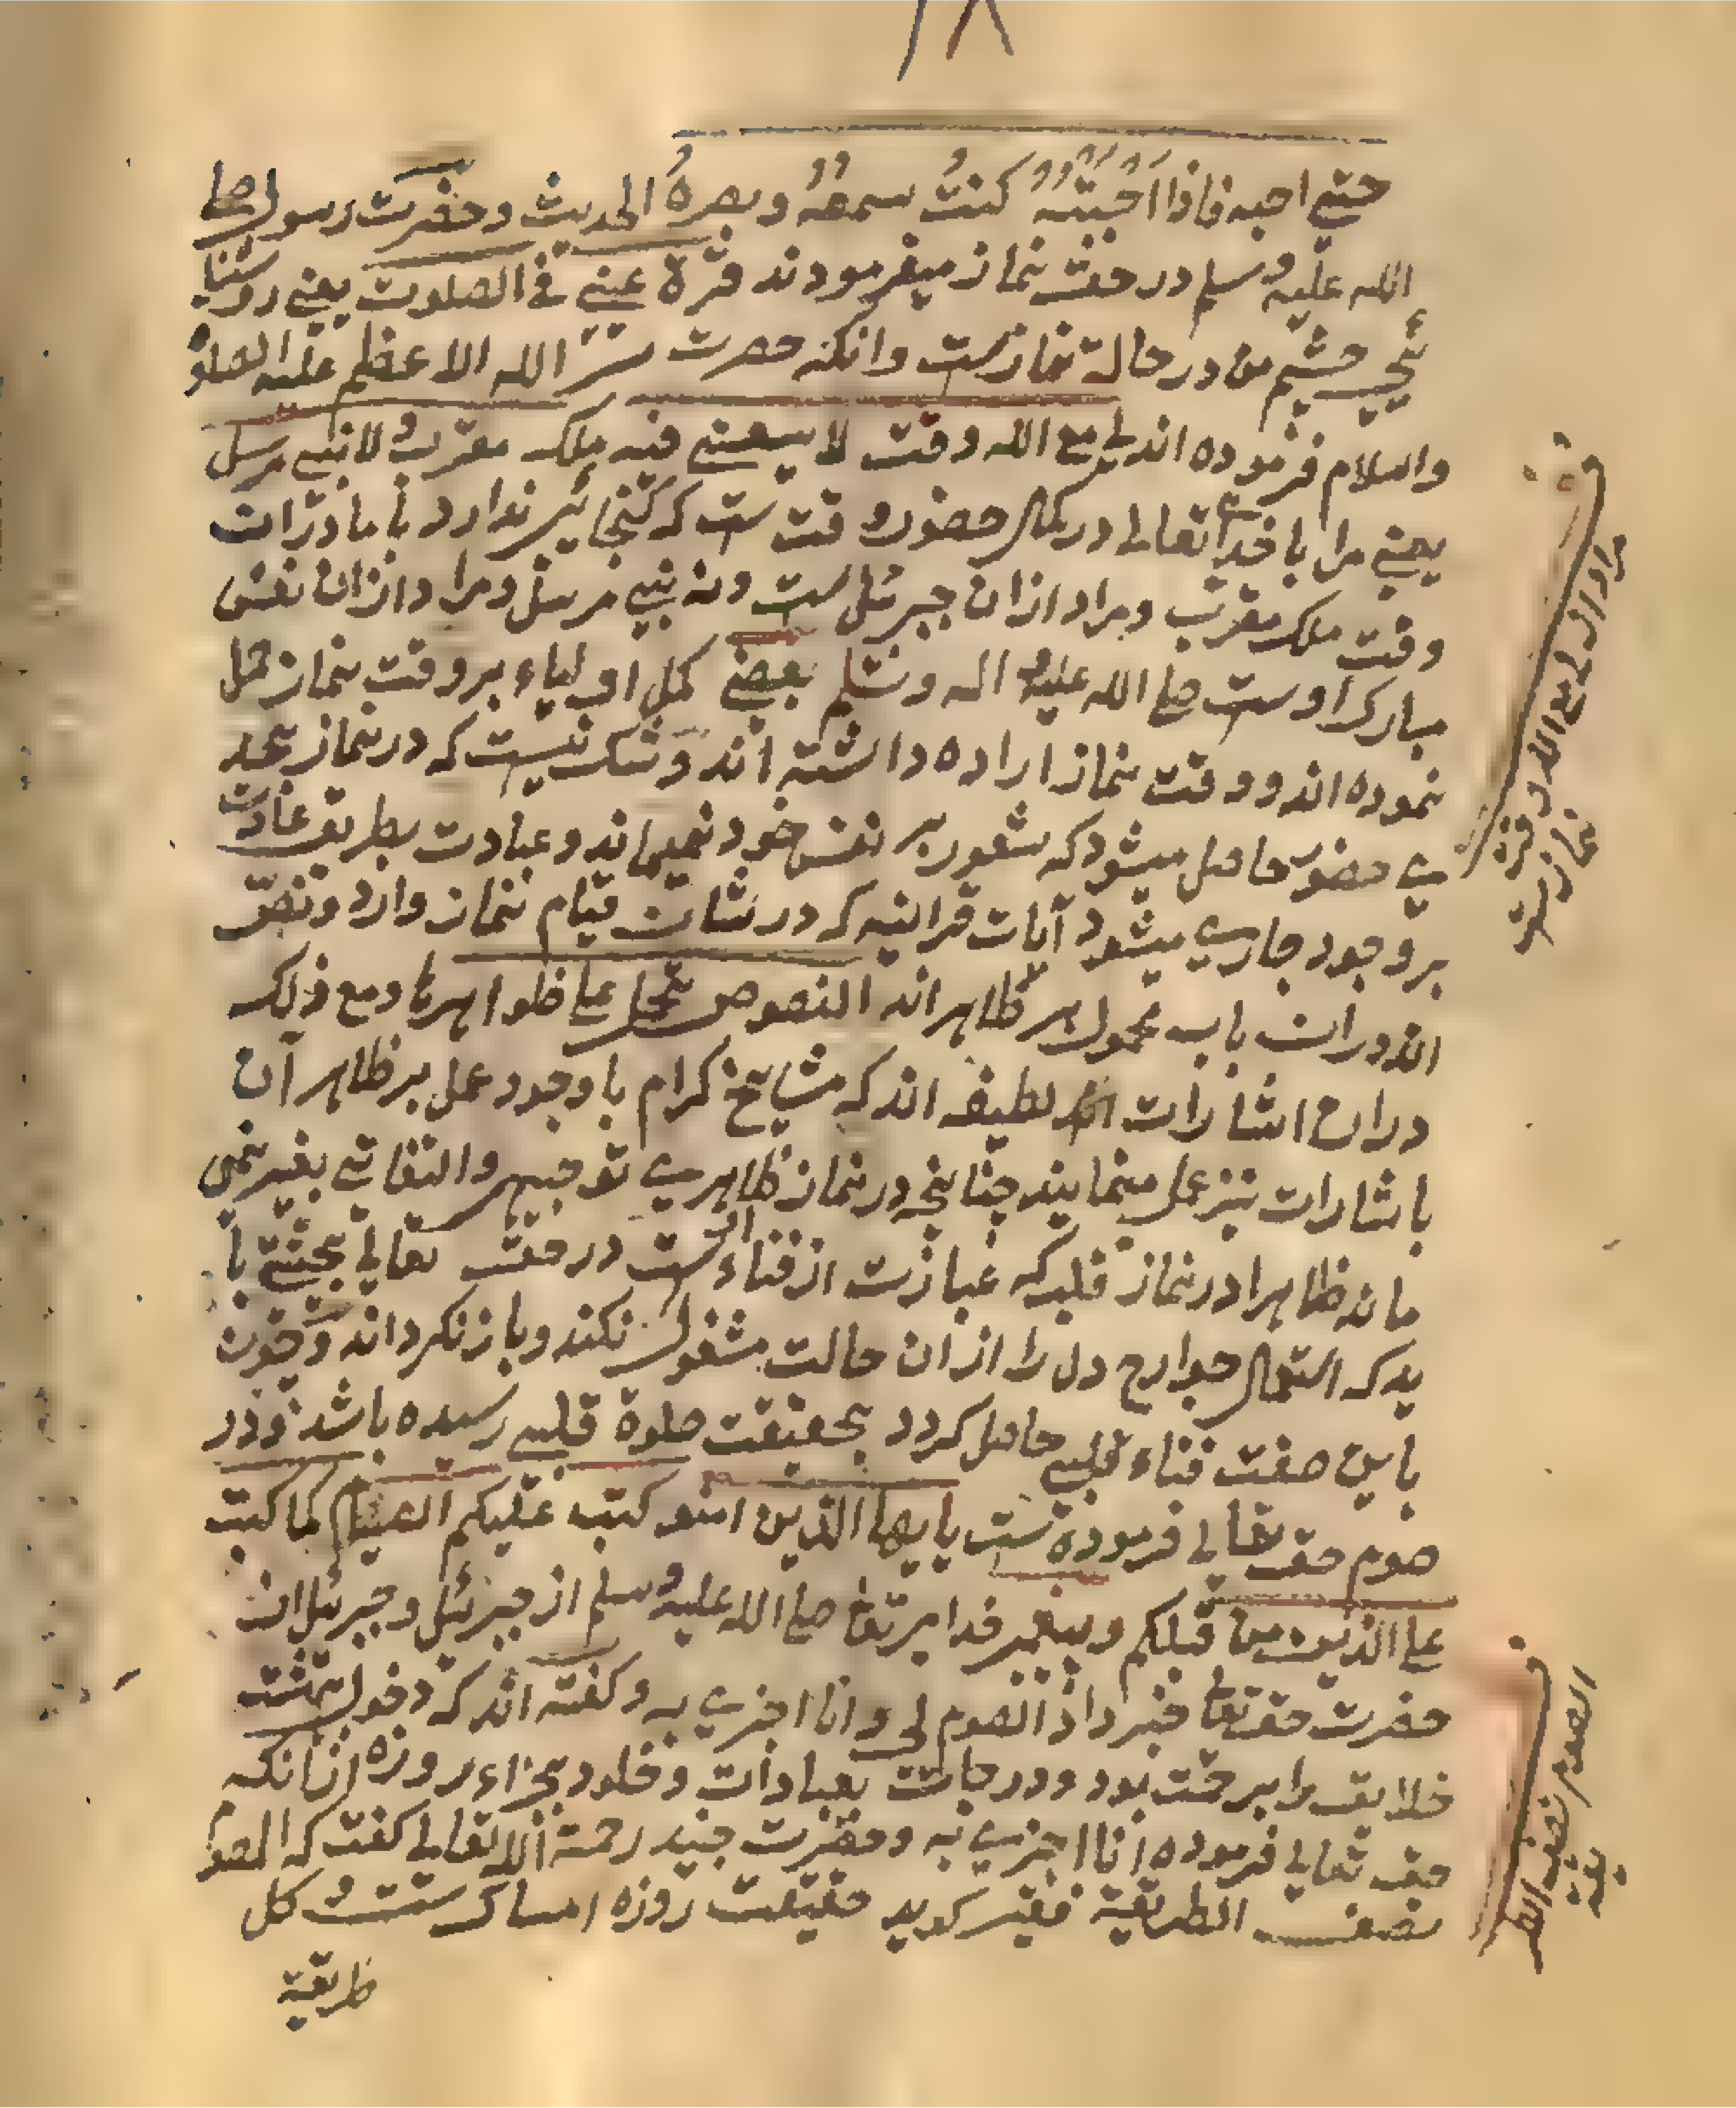 ۱۸
حتی احبه فاذا احببته کنت سمعه وبصره الحدیث وحضرت رسول صلی
الله علیه وسلم در حق نماز میفرمودند قرة عینی فی الصلوت یعنی روشنا
ئی چشم من در حالة نماز ست وانکه حضرت سر الله الاعظم علیه الصلو
والسلام فرموده اند لی مع الله وقت لا یسعنی فیه ملک مقرب ولا نبی مرسل
یعنی مرا با خدای تعالی در کمال حضور وقت ست که گنجایش ندارد با ما دران
وقت ملک مقرب ومراد ازان جبرئیل ست ونه نبی مرسل ومراد ازان نفس
مبارک اوست صلی الله علیه اله وسلم بعضی کمل اولیاء بر وقت نماز حمل
نموده اند ووقت نماز اراده داشته اند وشک نیست که در نماز بحد
ی حضور حاصل میشود که شعور بر نفس خود نمیماند وعبادت بطریق عادت
بر وجود جاری میشود آیات قرانیه که در شان قیام نماز وارد ونص
اند دران باب محمول بر ظاهر اند النصوص تحمل علی ظواهرها ومع ذلک
دران اشارات لطیفه اند که مشایخ کرام با وجود عمل بر ظاهر آن
باشارات نیز عمل مینمایند چنانچه در نماز ظاهری توجهی والتفاتی بغیر نمی
ماند ظاهرا در نماز قلبی که عبارت از فناء اوست در حق تعالی بحیثی با
ید که استعمال جوارح دل را ازان حالت مشغول نکند وباز نکرداند وچون
باین صفت فناء قلبی حاصل کردد بحقیقت صلوة قلبی رسیده باشد ودر
صوم حق تعالی فرموده ست یا یها الذین امنو کتب علیکم الصیام کما کتب
علی الذین من قبلکم وپیغمبر خدا صلی الله علیه وسلم از جبرئیل وجبرئیل ان
حضرت حق تعالی خبر داد الصوم لی وانا اجزی به وکفته اند که دخول بهشت
خلایق را برحمت بود ودرجات بعبادات وخلود بجزاء روزه ازانکه
حق تعالی فرموده انا اجزی به وحضرت جنید رحمة الله تعالی کفت که الصوم
نصف الطریقة فقیر کوید حقیقت روزه امساک ست وکل
طریقة
مراد از لی مع الله وقت
نماز ست
الصوم نصف الطر
یقة